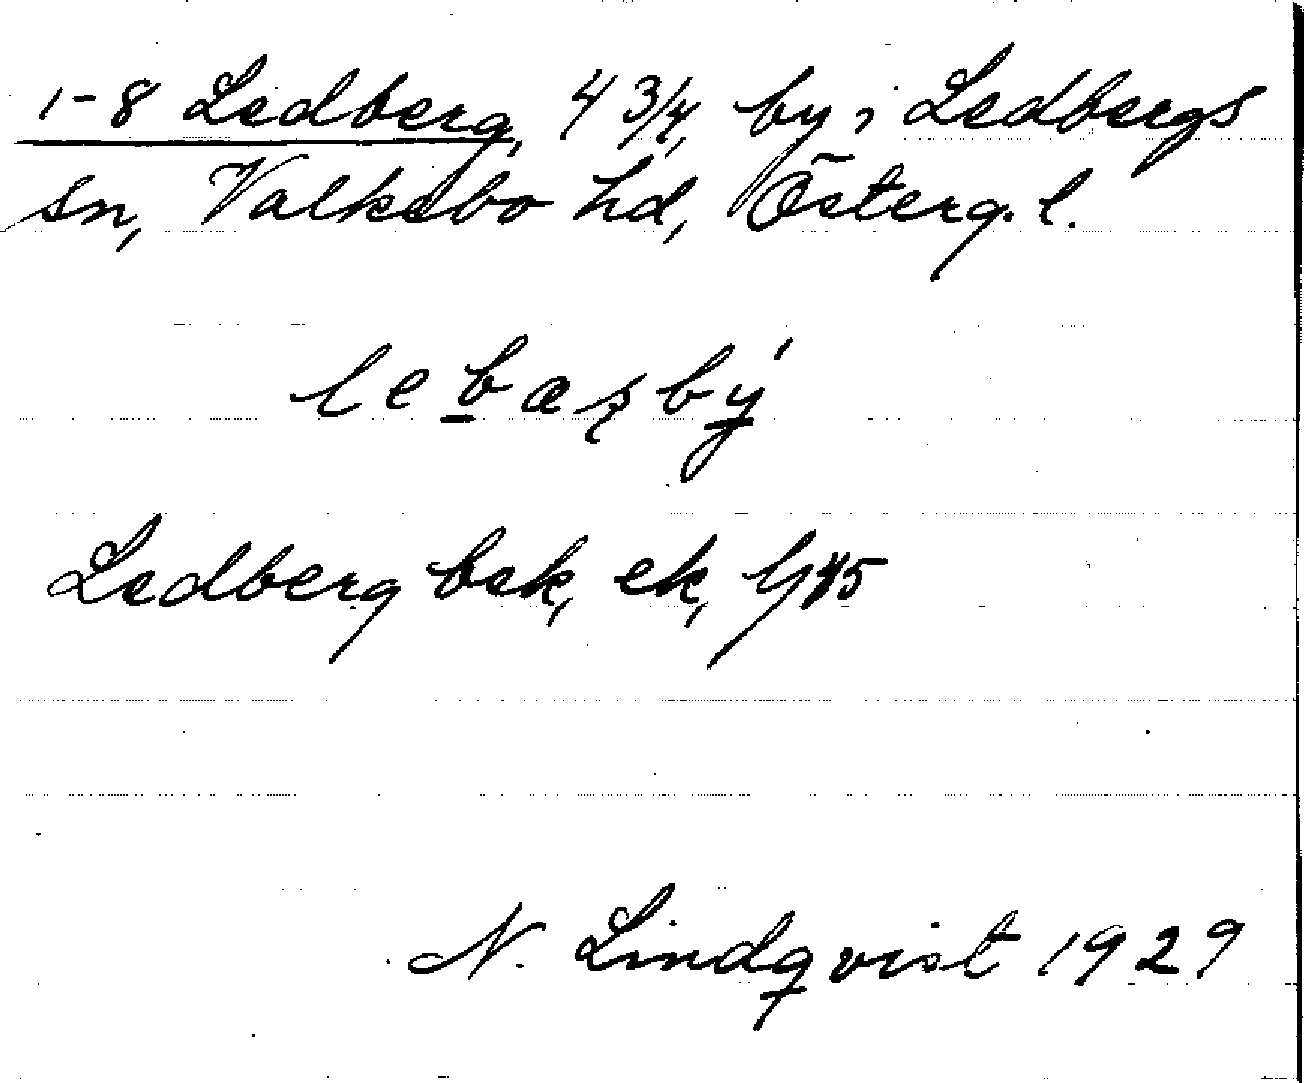 1-8 Ledberg, 4 3/4, by i Ledbergs
sn, Valkebo hd, Österg. l.
lebæṣbý
Ledberg bek, ek,
N. Lindqvist 1929